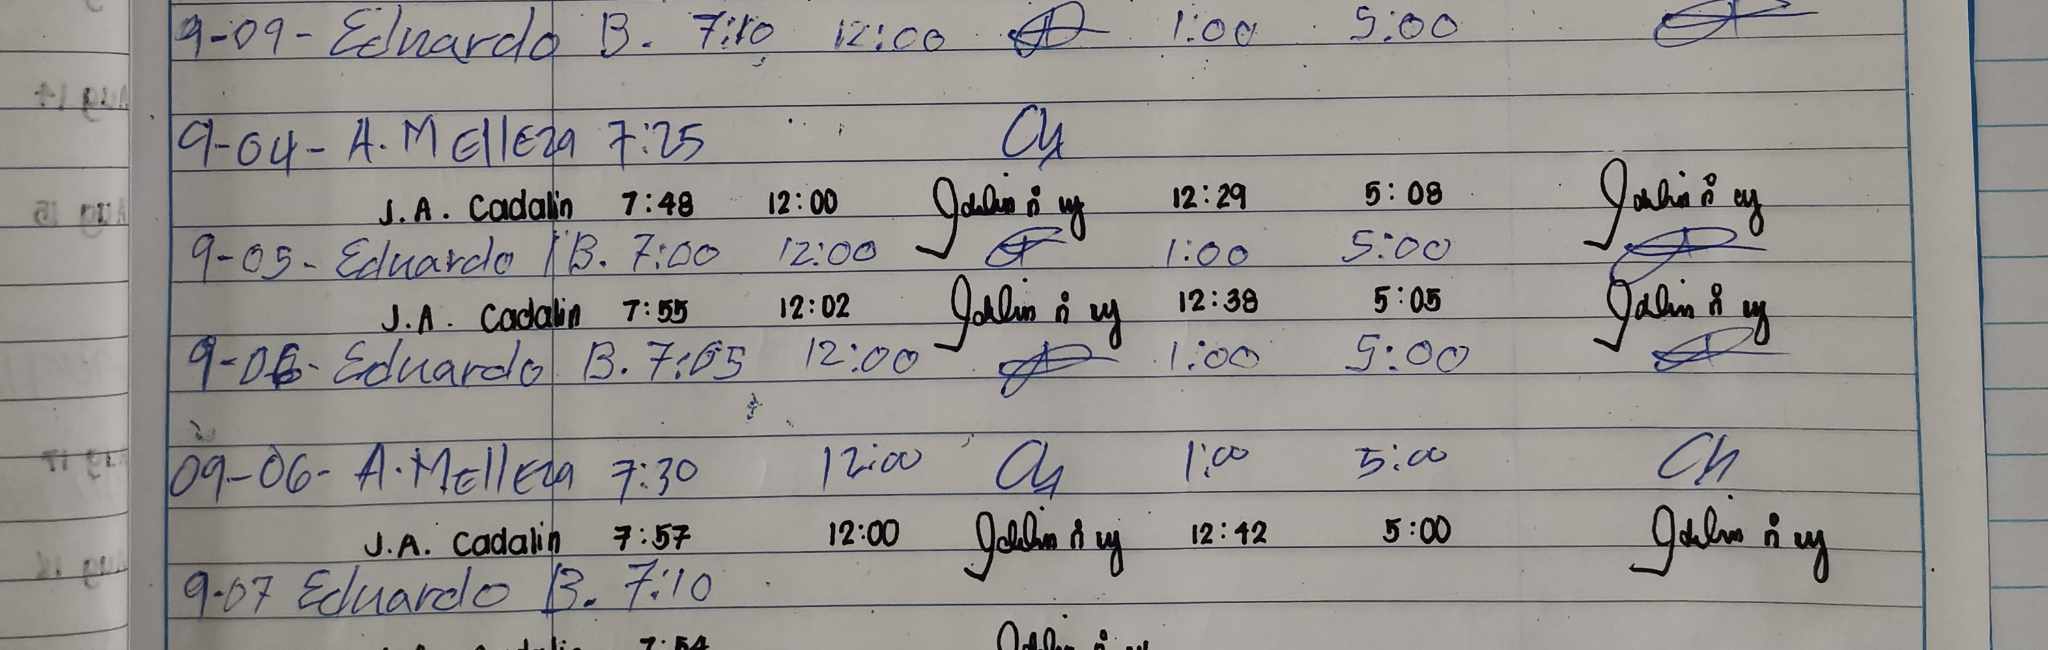 9-09- Eduardo B. 7:10 12:00 1:00 5:00
9-04- A. MEllEza 7:25
J.A. Cadalin 7:48 12:00 12:29 5:08
9-05- Eduardo B. 7:00 12:00 1:00 5:00
J.A. Cadalin 7:55 12:02 12:38 5:05
9-06- Eduardo B. 7:05 12:00 1:00 5:00
09-06- A. MEllEza 7:30 12:00 1:00 5:00
J.A. Cadalin 7:57 12:00 12:42 5:00
9-07 Eduardo B. 7:10
7:54